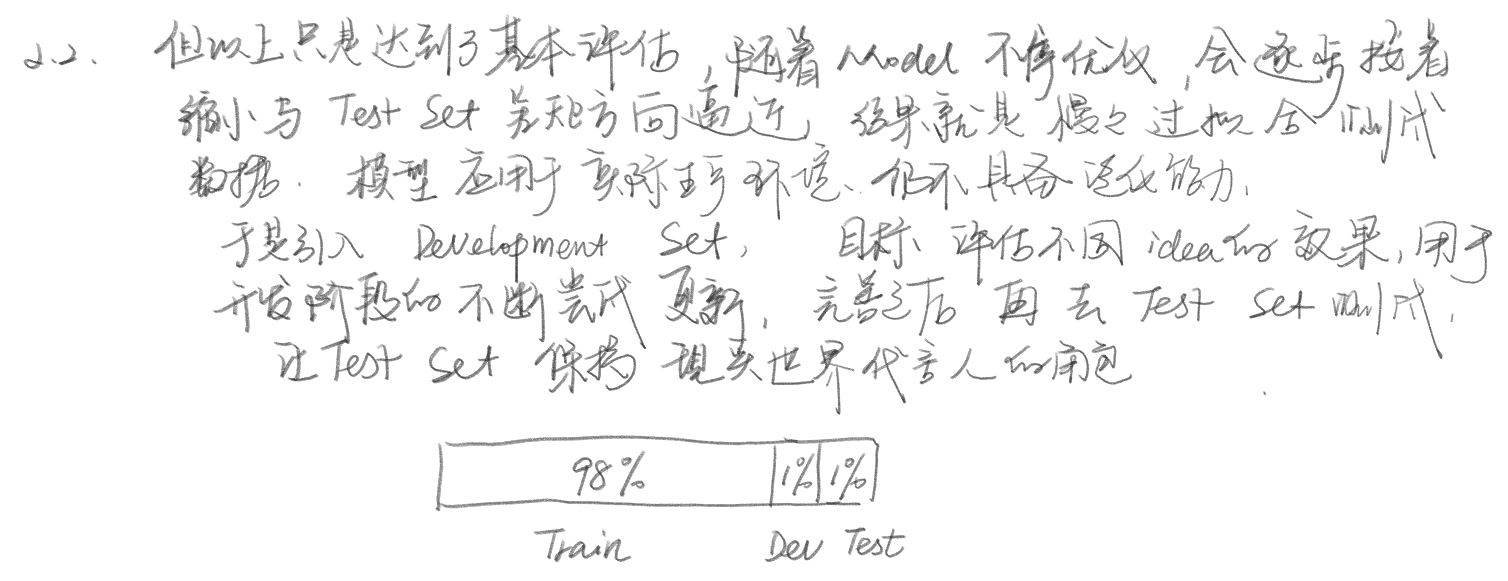 2.2. 但以上只是达到了基本评估，随着 Model 不停优化，会逐步按着
缩小与 Test Set 差距方向逼近，结果就是慢慢过拟合测试
数据. 模型应用于实际生产环境、仍不具备泛化能力.
于是引入 Development Set, 目标、评估不同 idea的效果，用于
开发阶段的不断尝试更新，完善之后再去 Test Set 测试.
让Test Set 保持现实世界代言人的角色
98% 1% 1%
Train Dev Test